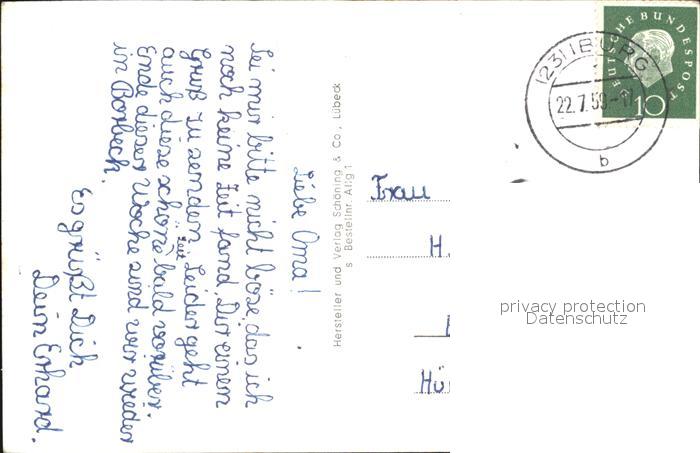 Liebe Oma!
Sei mir bitte nicht böse, das ich
noch keine Zeit fand, Dir einen
Gruß zu senden. Leider geht
auch diese schöne Zeit bald vorüber.
Ende dieser Woche sind wir wieder
in Borbeck.
Es grüßt Dich
Dein Erhard.
Hersteller und Verlag Schöning & Co., Lübeck
s Bestellnr. Allg 1
DEUTSCHE BUNDESPOST
10
(23) IBURG
22.7.59-17
b
Frau
H.
Hü
privacy protection
Datenschutz